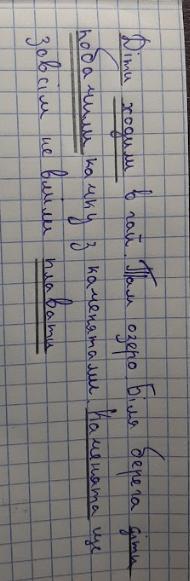 Діти ходили в гай. Там озеро Біля берега діти
побачили качку з каченятами. Каченята ще
зовсім не вміли плавати